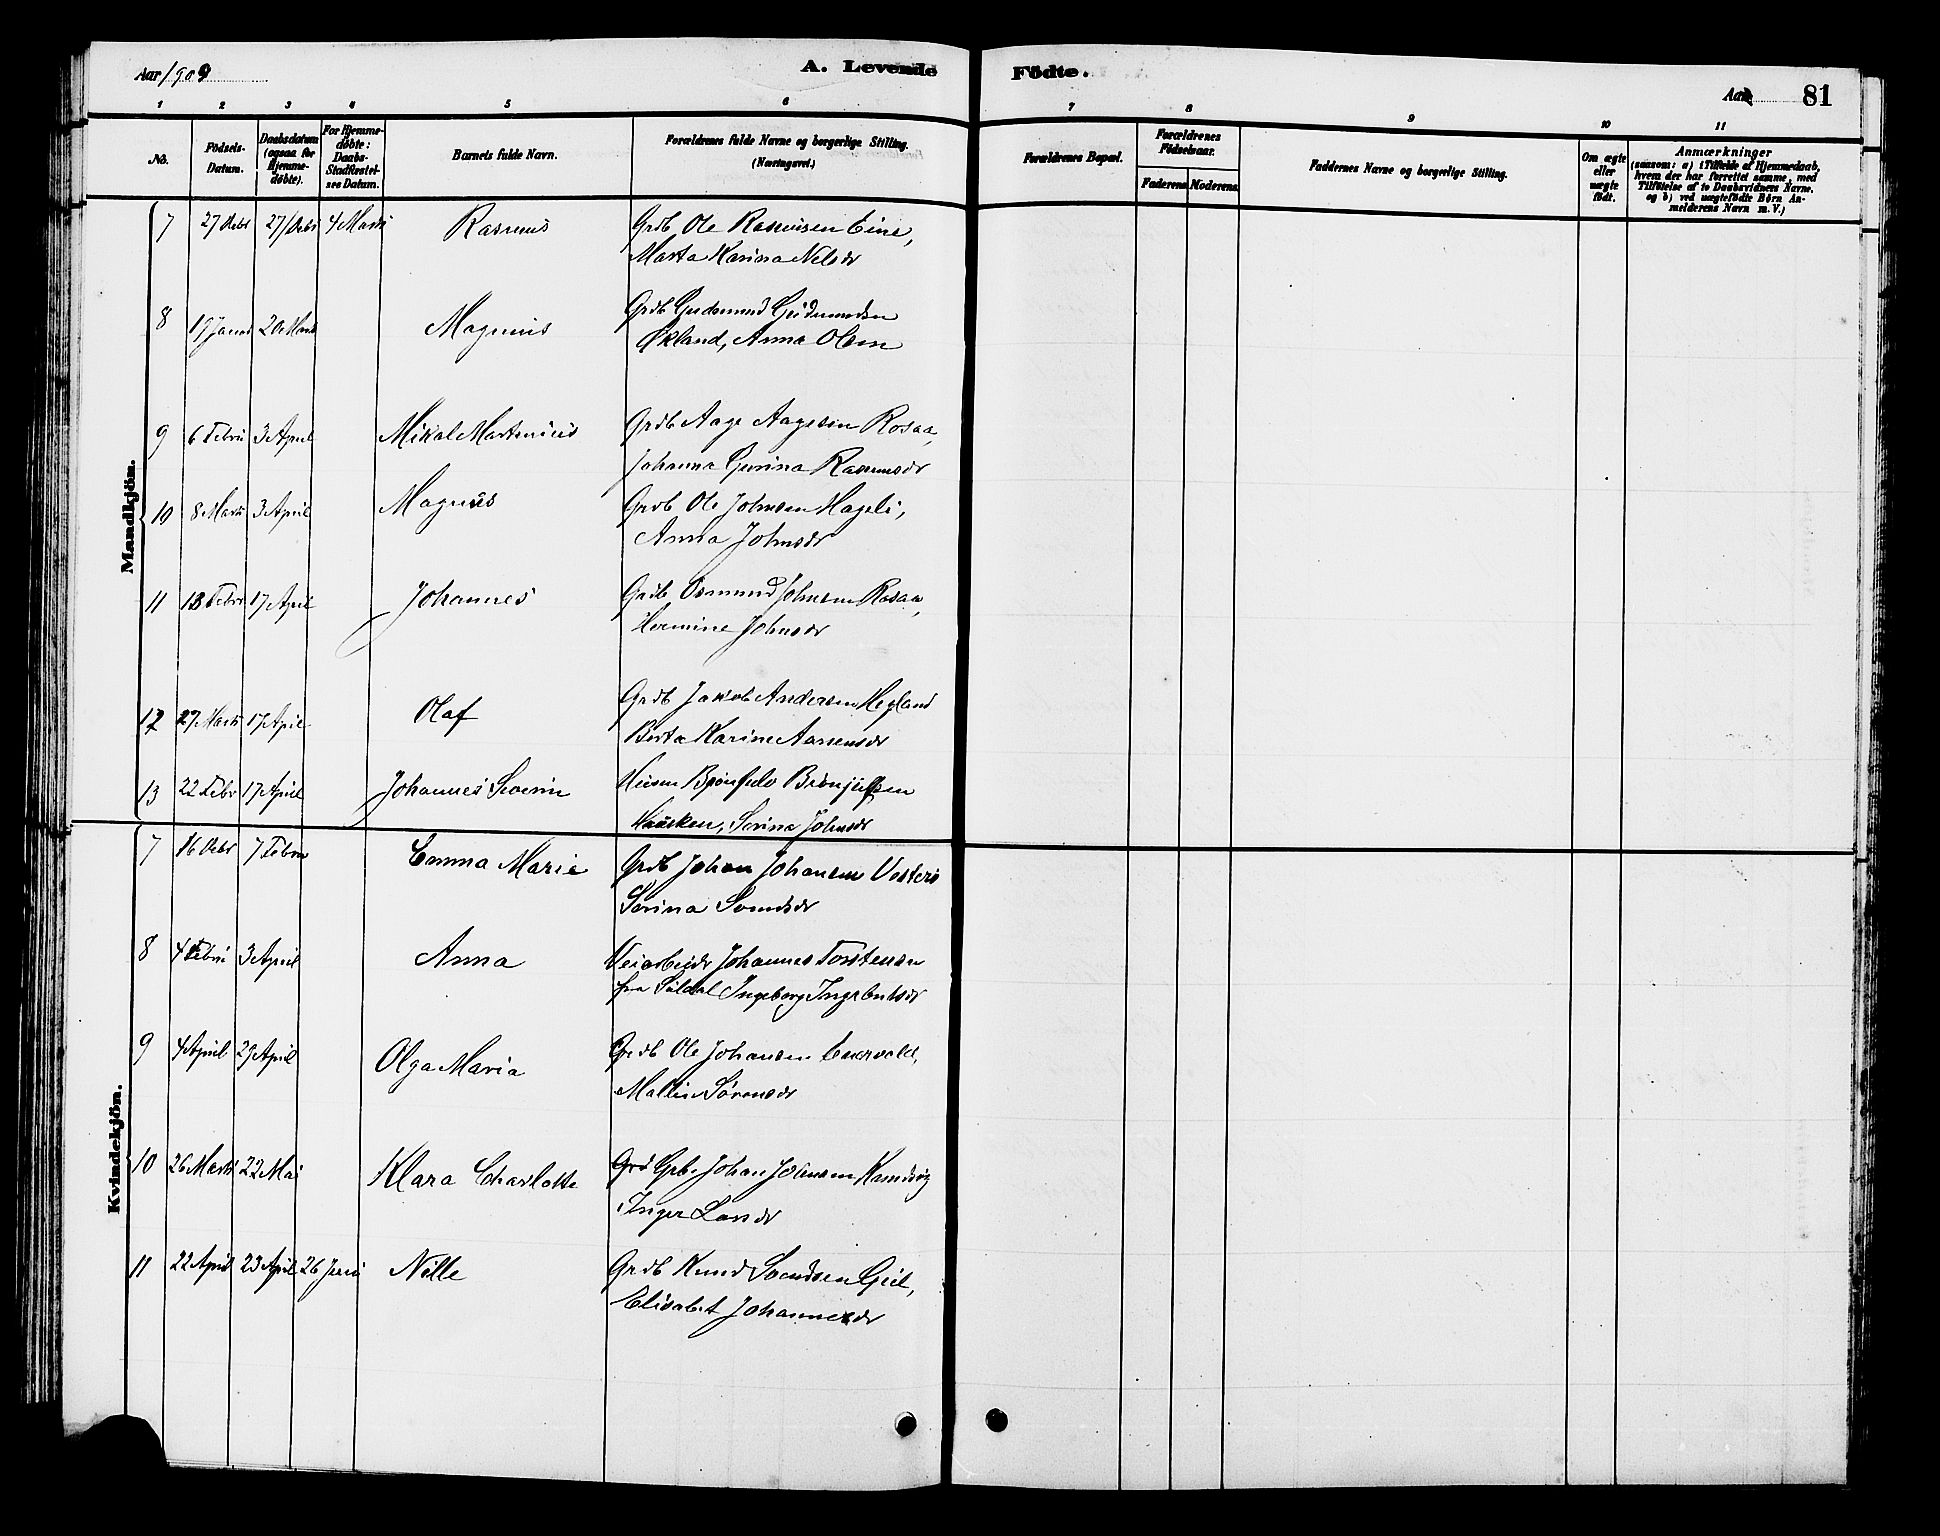 Aar 1909
A. Levende Födte.
Aar 81
1 2 3 4 5 6 7 8 9 10 11
No.
Födsels-Datum.
Daabsdatum (ogsaa for Hjemme-døbte).
For Hjemme-døbte: Daabs-Stadfæstel-ses Datum.
Barnets fulde Navn.
Forældrenes fulde Navne og borgerlige Stilling.
(Næringsvei.)
Forældrenes Bopæl.
Forældrenes Födselsaar.
Faderens. Moderens.
Faddernes Navne og borgerlige Stilling.
Om ægte eller uægte født.
Anmærkninger
(saasom: a) i Tilfælde af Hjemmedaab,
hvem der har forrettet samme, med
Tilföielse af to Daabsvidners Navne.
og b) ved uægtefödte Börn An-
melderens Navn m. V.)
Mandkjön.
7 27 Debr 27/Debr 4 Marts Rasmus Grdb Ole Rasmusen Eine,
Marta Karina Nelsdr
8 19 Januar 20 Marts Magnus Grdb Gudmund Gudmundsen
Økland, Anna Olsen
9 6 Febru 3 April Mikal Martinius Grdb Aage Aagesen Rosaa,
Johanna Gurina Rasmusdr
10 8 Marts 3 April Magnus Grdb Ole Johnsen Hageli,
Anna Johnsdr
11 13 Febru 17 April Johannes Grdb Osmund Johnsen Rosaa,
Hermine Johnsdr
12 27 Marts 17 April Olaf Grdb Jakob Andersen Hegland
Berta Karine Aanensdr
13 22 Febr 17 April Johannes Severin Brynjulfsen
Hausken, Serina Johnsdr
Kvindekjön.
7 16 Debr 7 Febru Emma Marie Grdb Johan Johansen Vesters
Serina Svendsdr
8 4 Febru 3 April Anna Veiarbeidr Johannes Torstensen
fra Suldal Ingeborg Ingebretsdr
9 4 April 29 April Olga Maria Grdb Ole Johansen
Malline Sørensdr
10 26 Marts 22 Mai Klara Charlotte Grdb. Johan Johnsen
Inger Larsdr
11 22 April 23 April 26 Juni Nille Grdb Knud Svendsen Geil,
Elisabet Johannesdr